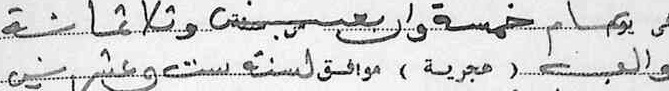 خمسة واربعين وثلاثمائة
والف ( هجرية ) موافق لسنة ست وعشرين